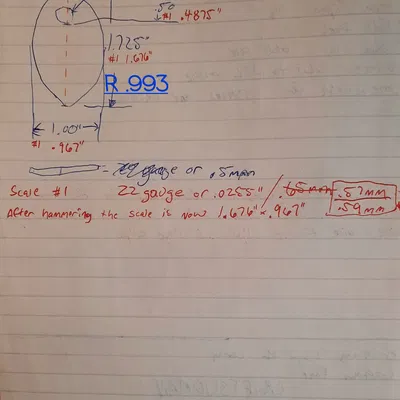 .50
#1 .4875"
1.725"
#1 1.676"
R .993
1.00"
#1 .967"
= 22 gauge or .5mm
Scale #1 22 gauge or .0255" / .65mm .57mm
.59mm
After hammering the scale is now 1.676" x .967"